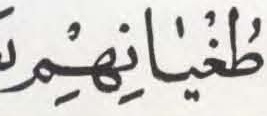 طُغْيَٰانِهِمْ